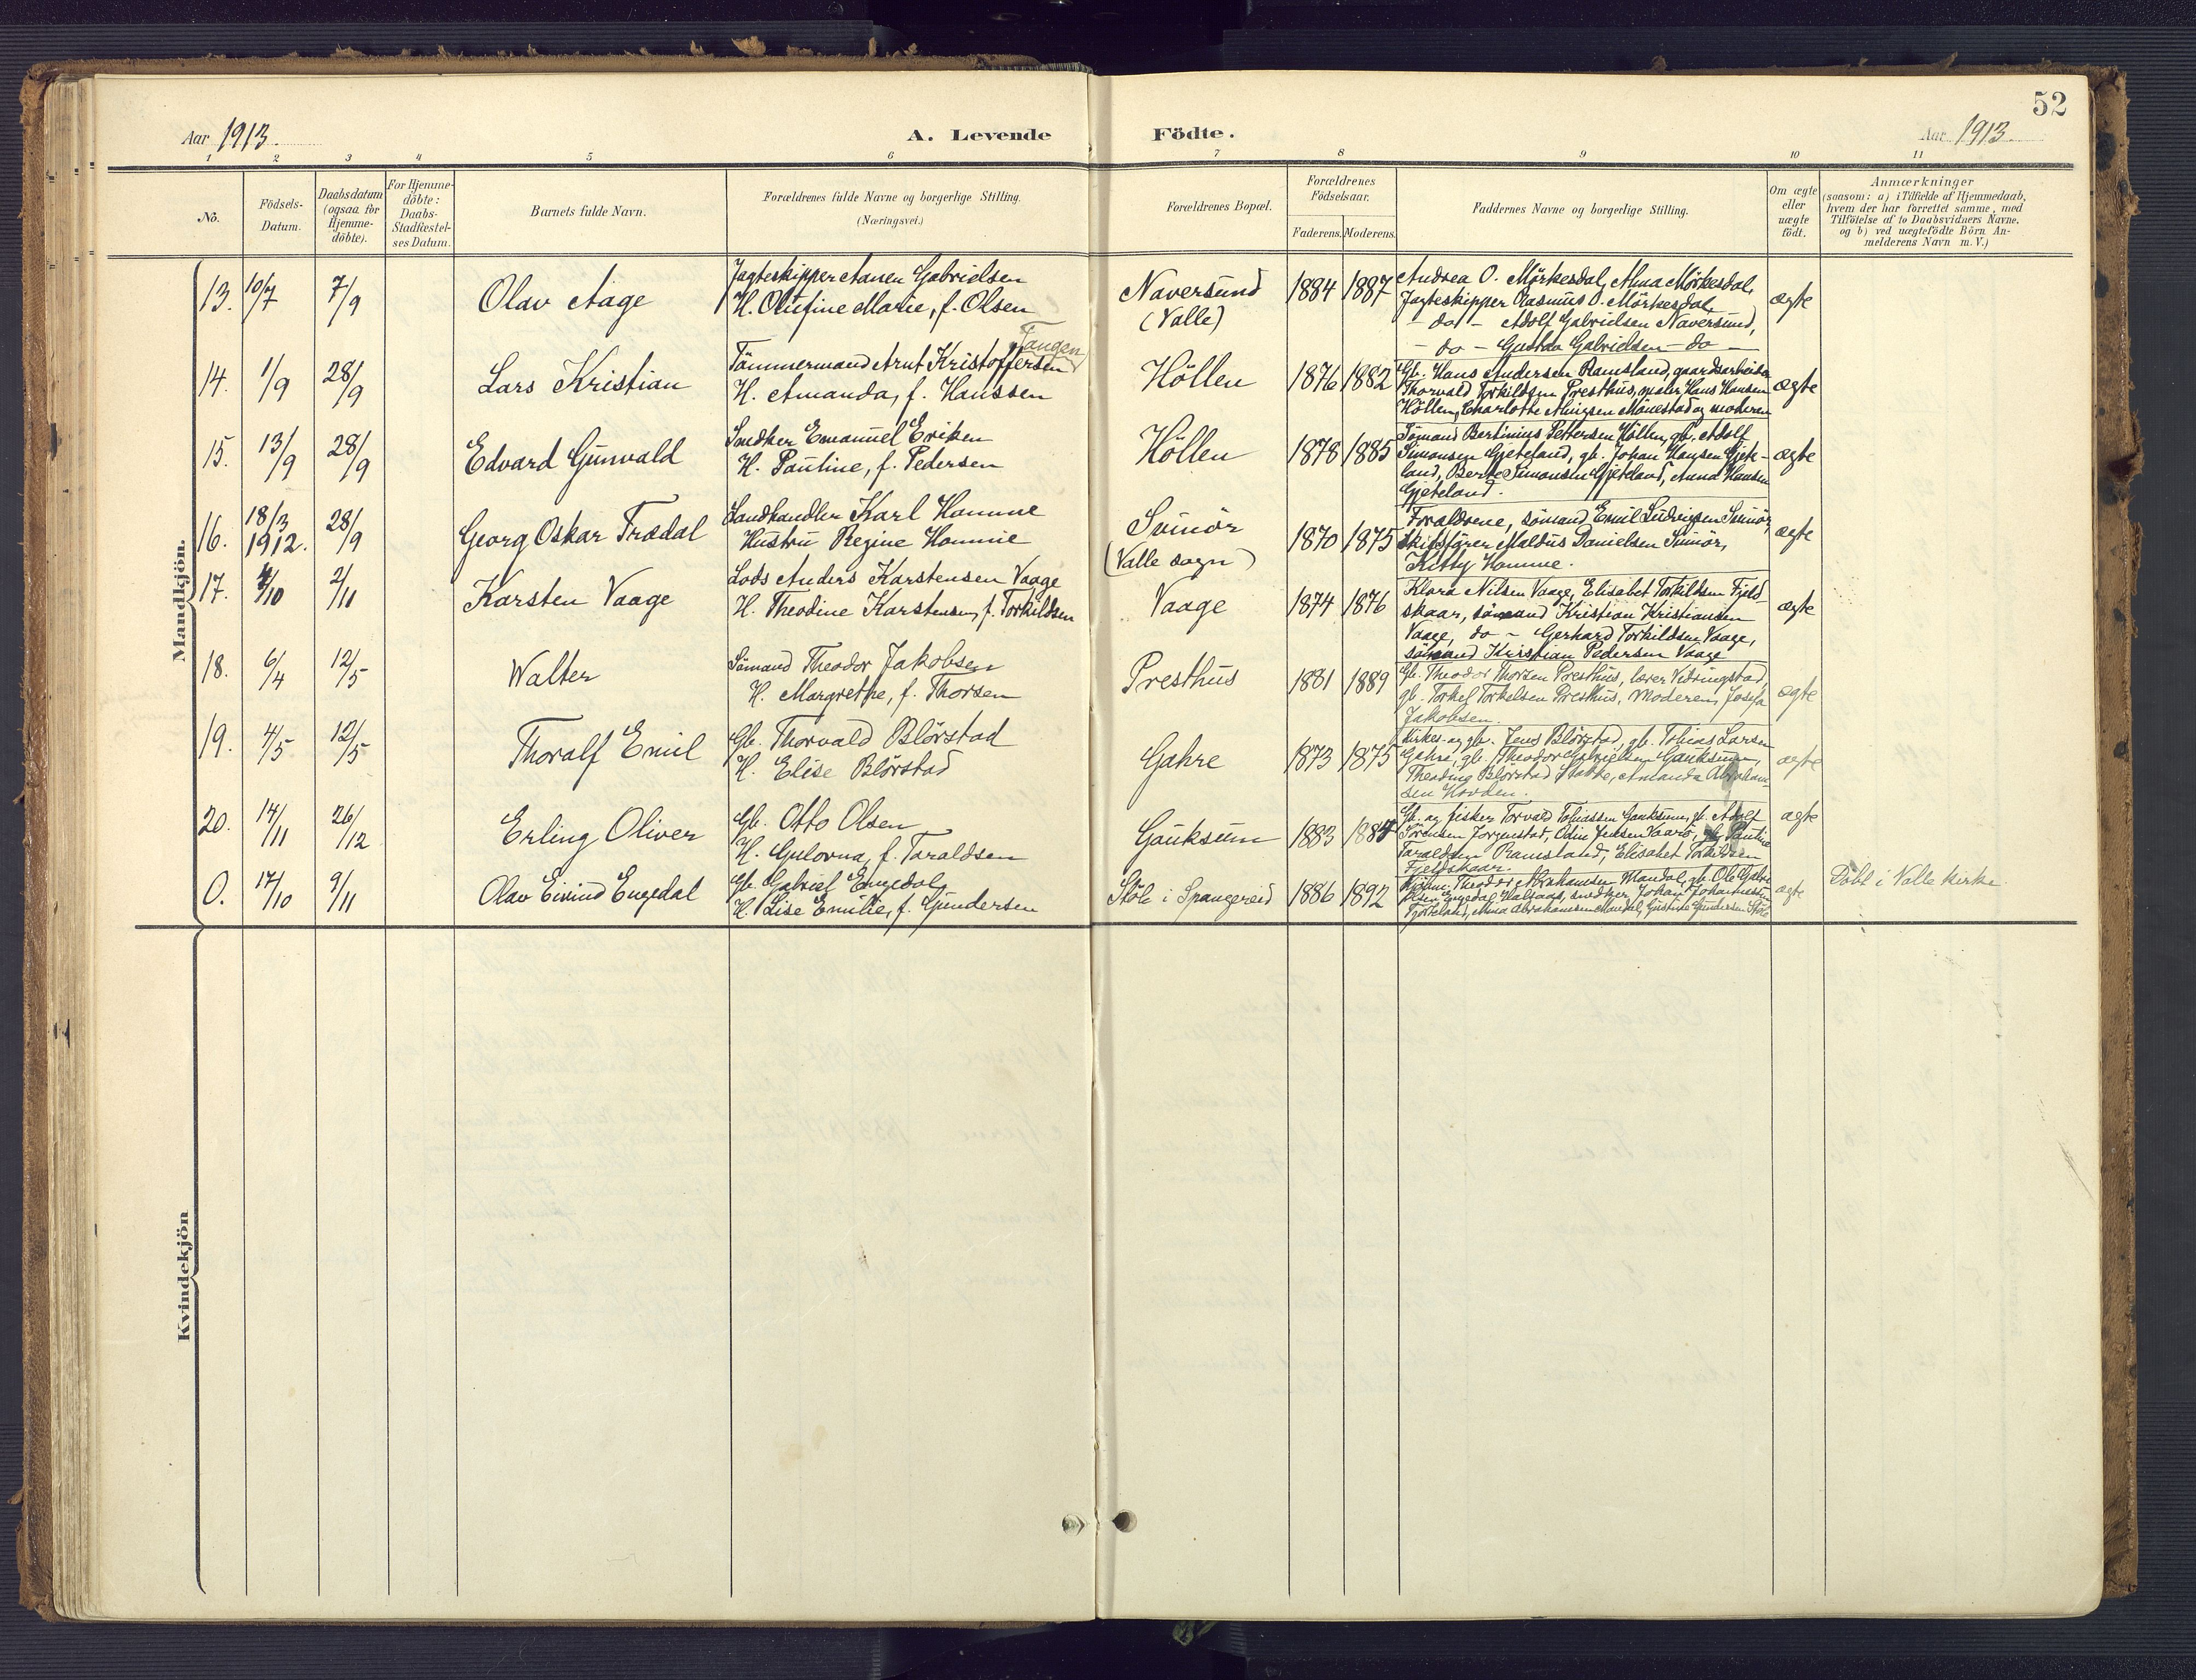 52
Aar 1913.
A. Levende
Födte.
Aar 1913
1 2 3 4 5 6 7 8 9 10 11
No.
Födsels-
Datum.
Daabsdatum
(ogsaa for
Hjemme-
döbte).
For Hjemme-
döbte:
Daabs-
Stadfæstel-
ses Datum.
Barnets fulde Navn.
Forældrenes fulde Navne og borgerlige Stilling.
(Næringsvei.)
Forældrenes Bopæl.
Forældrenes
Födselsaar.
Faderens. Moderens.
Faddernes Navne og borgerlige Stilling.
Om ægte
eller
uægte
födt.
Anmærkninger
(saasom: a) i Tilfælde af Hjemmedaab,
hvem der har forrettet samme, med
Tilföielse af to Daabsvidners Navne.
og b) ved uægtefödte Börn An-
melderens Navn m. V.)
Mandkjön.
13. 10/7 7/9 Olav Aage
Jagteskipper Aanen Gabrielsen
H. Olufine Marie, f. Olsen
Naversund
(Valle)
1884 1887
Andrea O. Mörkesdal, Alma Mörkesdal,
Jagteskipper Rasmus O. Mörkesdal,
- do - Adolf Gabrielsen Naversund,
- do - Gustav Gabrielsen - do -
ægte
14. 1/9 28/9 Lars Kristian
Tangen
Tömmermand Arnt Kristoffersen
H. Amanda, f. Hanssen
Höllen
1876 1882
Gb. Hans Andersen Ramsland, gaardsarbeider
Thorvald Torkildsen Presthus, maler Hans Hansen
Höllen, Charlotte Månestad og moderen
ægte
15. 13/9 28/9 Edvard Gunvald
Snedker Emanuel Eriksen
H. Pauline, f. Pedersen
Höllen
1878 1885
Sömand Bertinius Pettersen Höllen, gb. Adolf
Simonsen Gjeteland, gb. Johan Hansen Gjete-
land, Berte Simonsen Gjeteland, Anna Hansen
Gjeteland.
ægte
16. 18/3 1912. 28/9 Georg Oskar Trædal
Landhandler Karl Homme
Hustru Regine Homme
Svinör
(Valle sogn)
1870 1875
Forældrene, sömand Emil Ludvigsen Svinör,
Skibsförer Maldus Danielsen Svinör,
Kitty Homme.
ægte
17. 4/10 2/11 Karsten Vaage
Lods Anders Karstensen Vaage
H. Theodine Karstensen, f. Torkildsen
Vaage
1874 1876
Klara Nilsen Vaage, Elisabet Torkildsen Fjeld-
skaar, sömand Kristian Kristiansen
Vaage, do - Gerhard Torkildsen Vaage,
sömand Kristian Pedersen Vaage
ægte
18. 6/4 12/5 Walter
Sömand Theodor Jakobsen
H. Margrethe, f. Thorsen
Presthus
1881 1889
Gb. Theodor Thorsen Presthus, lærer Vidringstad,
gb. Torkel Torkelsen Presthus, Moderen, Josefa
Jakobsen.
ægte
19. 4/5 12/5 Thoralf Emil
Gb. Thorvald Blörstad
H. Elise Blörstad
Gahre
1873 1875
Kirkes. og gb. Jens Blörstad, gb. Tobias Larsen
Gahre, gb. Theodor Gabrielsen Gauksum,
Theodine Blörstad Stokke, Amanda Abraham-
sen Hovden.
ægte
20. 14/11 26/12 Erling Oliver
Gb. Otto Olsen
H. Gulovna, f. Taraldsen
Gauksum
1883 1884
Gb. og fisker Torvald Tobiassen Gauksum, gb. Adolf
Sörensen Jörgenstad, Odin Jensen Vaarö, Pauline
Taraldsen Ramsland, Elisabet Torkildsen
Fjeldskaar.
ægte
0. 17/10 9/11 Olav Eivind Engedal
Gb. Gabriel Engedal,
H. Lise Emilie, f. Gundersen
Stöle i Spangereid
1886 1892
Theodor Abrahamsen Mandal, gb. Ole Gabri-
elsen Engedal Halsaa, snedker Johan Johannesen
Tjorteland, Anna Abrahamsen Mandal, Gustine Gundersen Stöle
ægte
Döbt i Valle kirke
Kvindekjön